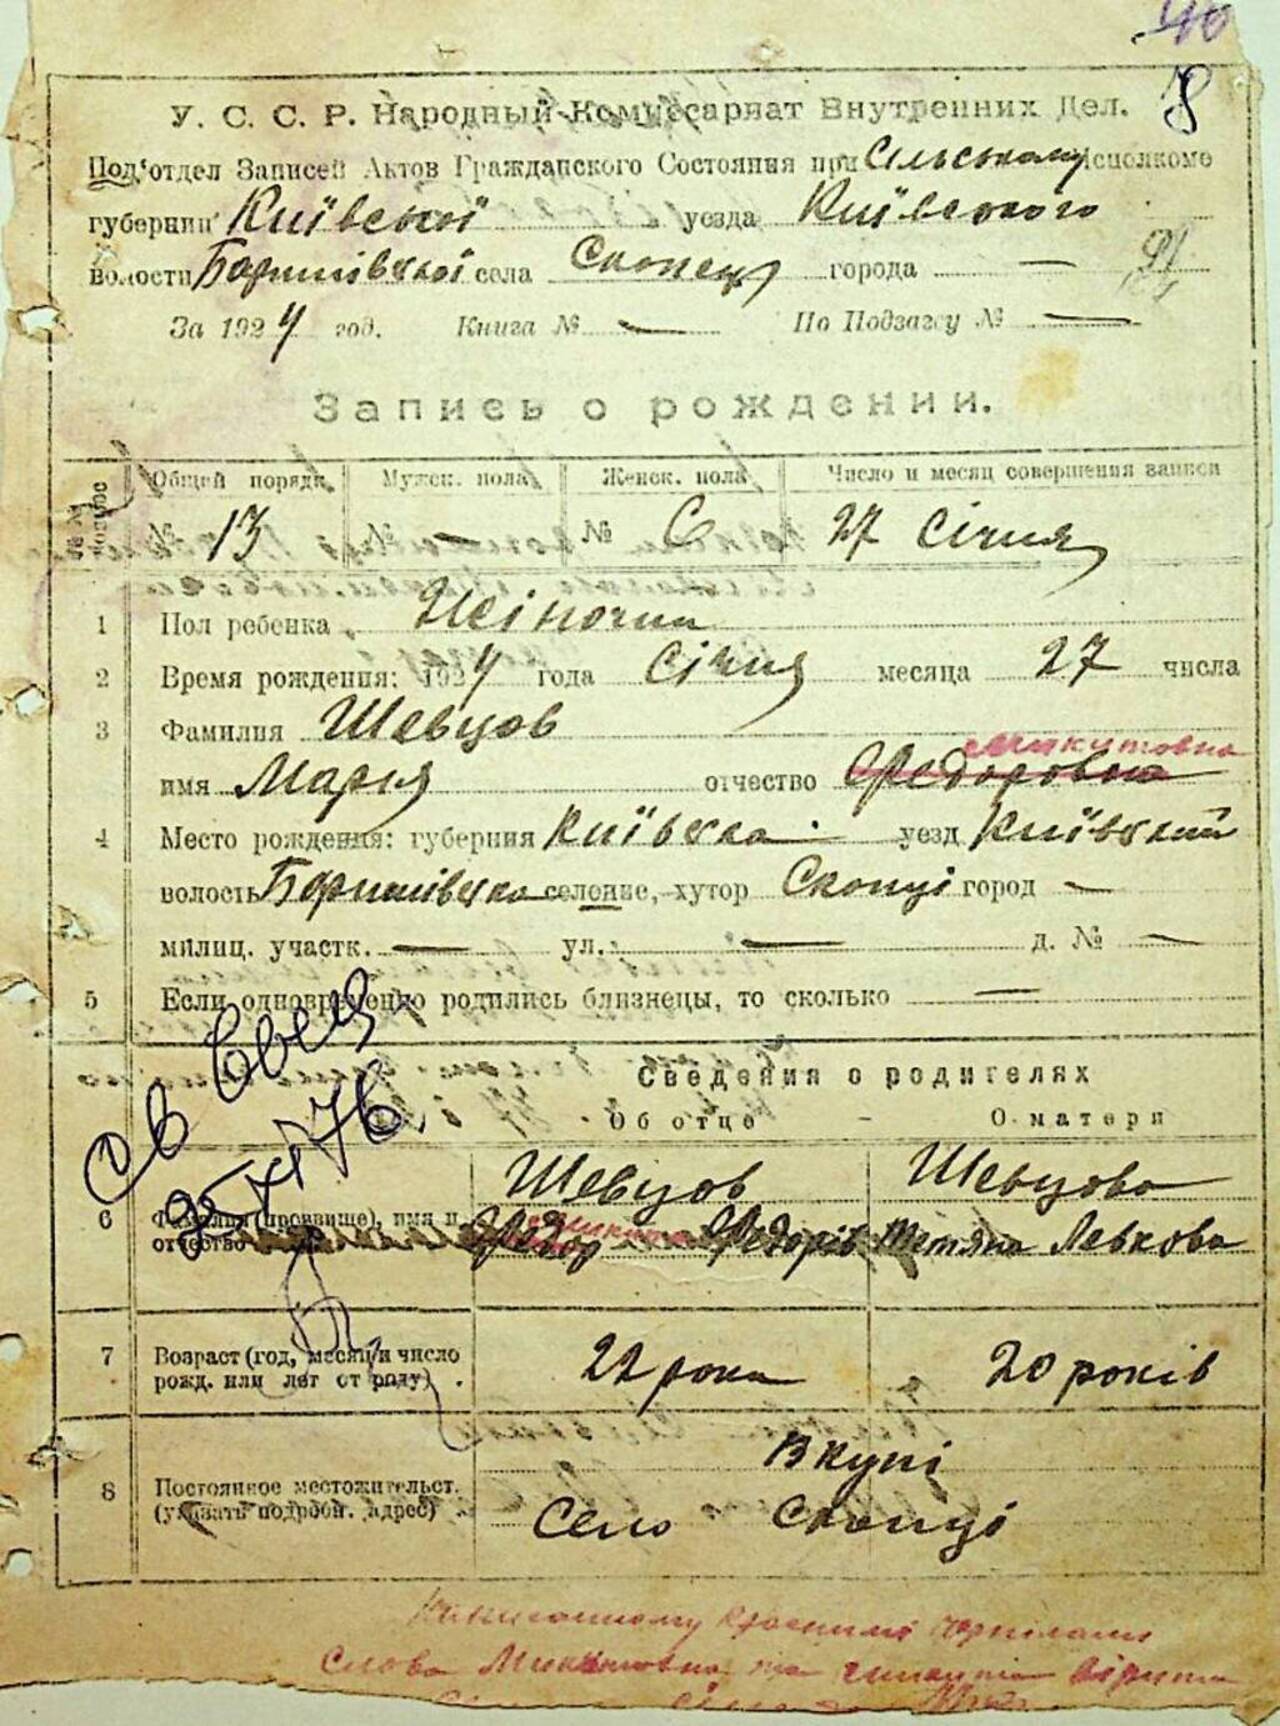 78
У. С. С. Р. Народный Комуссариат Внутренних Дел.
Под'отдел Записей Актов Гражданского Состояния при Сільському исполкоме
губернии Київської уезда Київського
волости Баришівської села Скопец города —
За 1924 год. Книга № — По Подзагсу № —
Запись о рождении.
Общей порядк. Мужск. пола Женск. пола Число и месяц совершения записи
13 № — № 6 27 Січня
1 Пол ребенка Жіноча
2 Время рождения: 1924 года Січня месяца 27 числа
3 Фамилия Шевцов
Микитовна
имя Мария отчество Федоровна
4 Место рождения: губерния Київська уезд Київський
волость Баришівска селение, хутор Скопці город —
милиц. участк. — ул. — д. № —
5 Если одновременно родились близнецы, то сколько —
Сведения о родителях
Об отце О матери
Шевцов Шевцова
6 Фамилия (прозвище), имя и отчество Федор Микита Федорів Тетяна Левкова
7 Возраст (год, месяц и число рожд. или лет от роду). 22 рока 20 років
Вкупі
8 Постоянное местожительст. (указать подробн. адрес) Село Скопці
красними чернілами
Слова Микитовна та Микита вірити